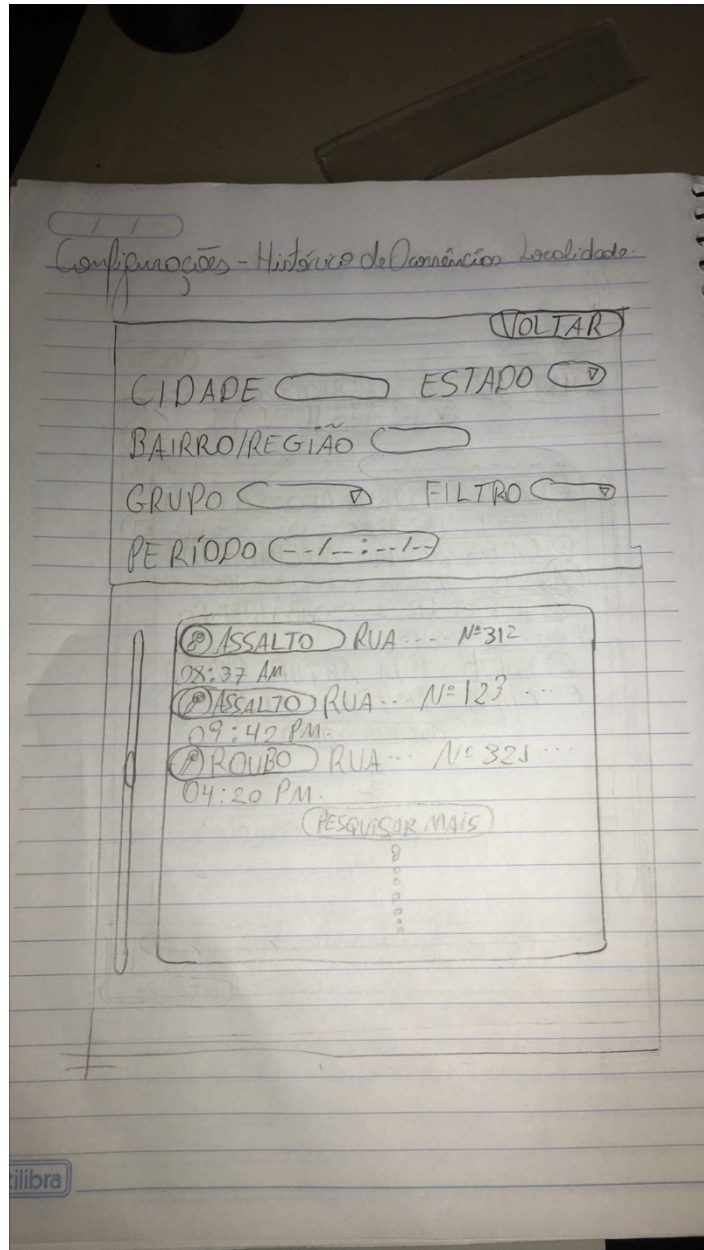 / /
Configurações - Histórico de Ocorrências Localidade.
VOLTAR
CIDADE ESTADO
BAIRRO/REGIÃO
GRUPO FILTRO
PERÍODO --/--:--/--
ASSALTO RUA .... Nº 312
08:37 AM
ASSALTO RUA ... Nº 123 ...
09:42 PM.
ROUBO RUA ... Nº 321 ...
04:20 PM.
PESQUISAR MAIS
tilibra